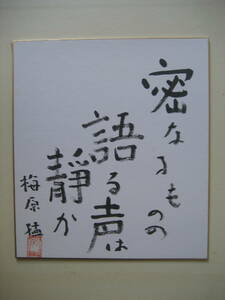 密なるもの
語る声は
靜か
梅原猛